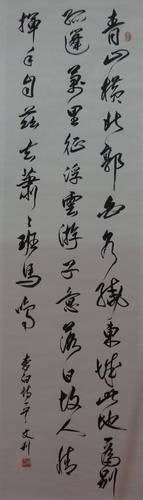 青山横北郭白水绕东城此地为别
孤蓬万里征浮云游子意落日故人情
挥手自兹去萧々班马鸣
李白诗一首文利